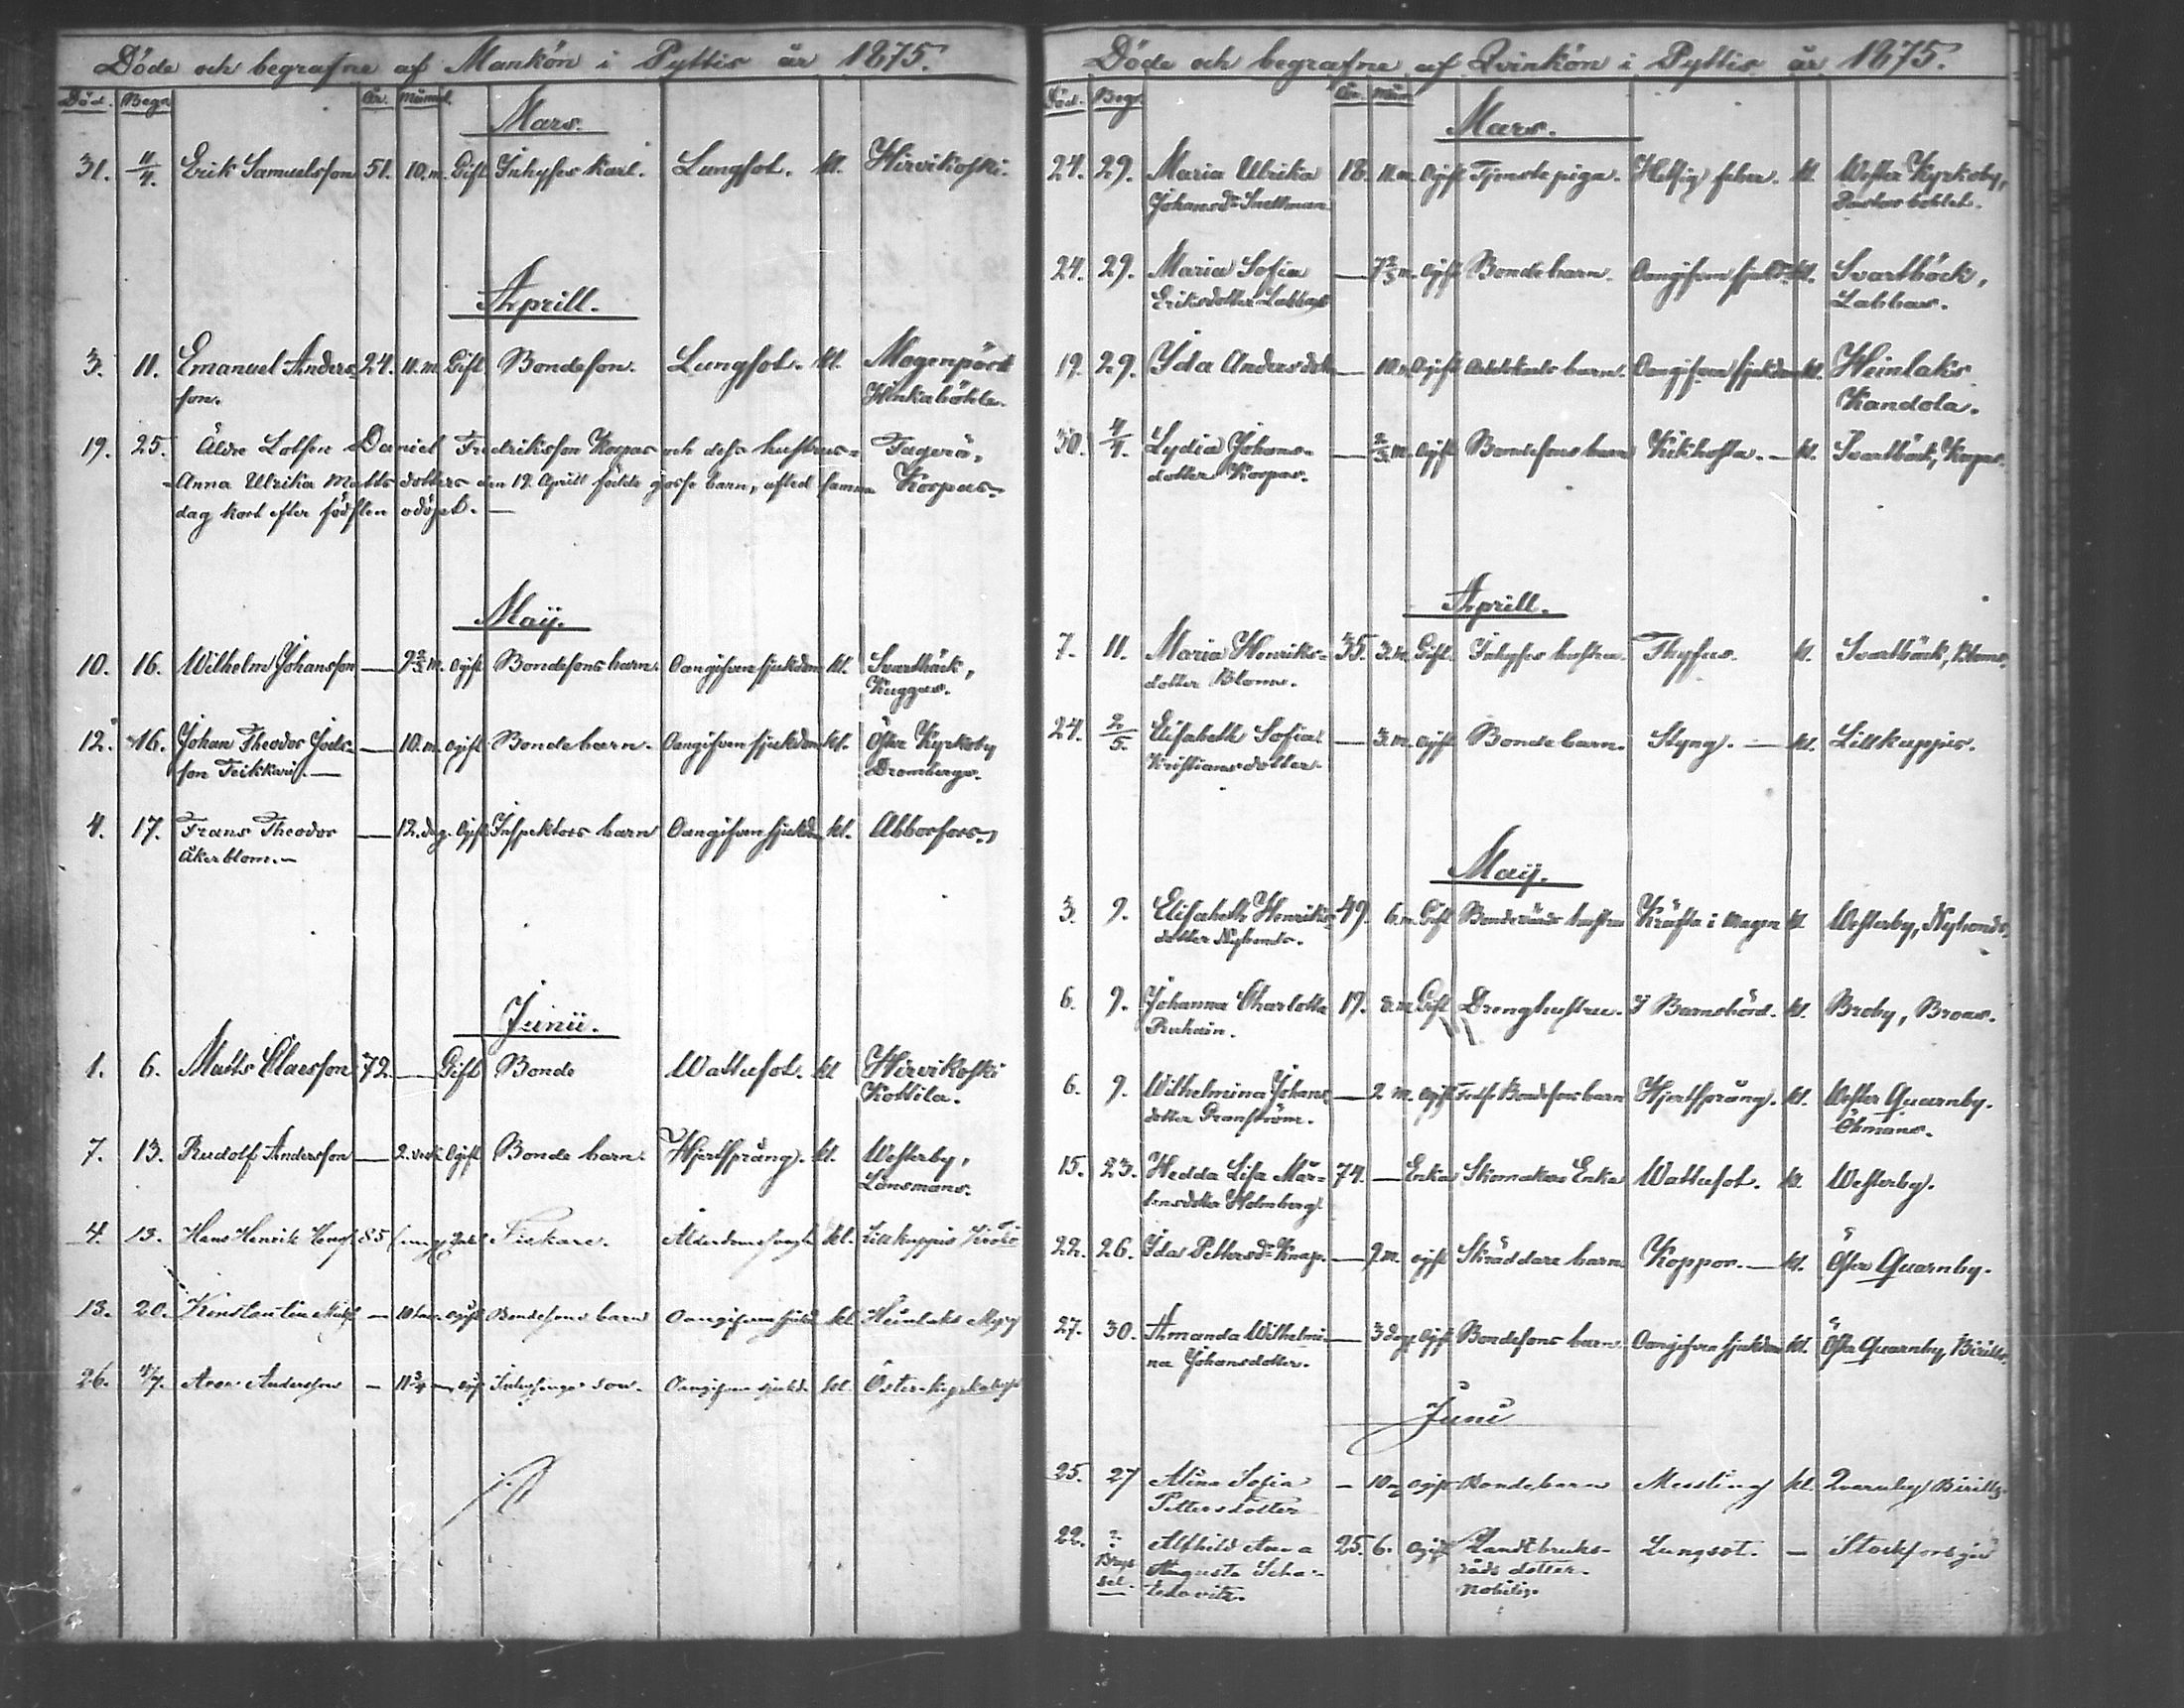 Döde och begrafne af Mankön i Pyttis år 1875.
Död. Begr. År. Månad.
Mars.
31. 11/4. Erik Samuelsson 51. 10. m. Gift Inhyses karl. Lungsot. kl. Hirvikoski.
Aprill.
3. 11. Emanuel Anders- 24. 11. m. Gift Bondeson. Lungsot. kl. Mogenpört
son. Hinkaböhle.
19. 25. Äldre Lotsen Daniel Fredriksson Korpas och dess hustrus- Fagerö,
Anna Ulrika Mattsdotters den 19. Aprill födde gosse barn, afled samma Korpas
dag kort efter födslen odöpt. —
Maij.
10. 16. Wilhelm Johansson — 9 2/3 m. ogift Bondesons barn. Oangifven sjukdom kl. Svartbäck,
Kuggas.
12. 16. Johan Theodor Jods- — 10. m. ogift Bondebarn. Oangifven sjukdom kl. Öster Kyrkoby
son Teikkari. — Drombergs.
4. 17. Frans Theodor — 12. dag. Ogift Inspektors barn Oangifven sjukdom kl. Abborfors.
Åkerblom. —
Junii.
1. 6. Matts Claesson 72. — Gift Bonde Wattusot. kl Hirvikoski
Kottila.
7. 13. Rudolf Andersson — 2. veck. Ogift Bonde barn. Hjertsprång. kl. Westerby,
Länsmans.
4. 13. Hans Henrik 85 Fiskare. kl. Lillkuppis
13. 20. — 10 Ogift Bondesons barn Oangifven sjukd. kl. Heinlaks
26. 4/7. Aron Andersson — 11 3/4 son. Oangifven sjukd. kl. Öster Kyrkoby
Döde och begrafne af Qvinkön i Pyttis år 1875.
Död. Begr. År. Mån
Mars.
24. 29. Maria Ulrika 18. 11. m. Ogift Tjenstepiga. Hetsig feber. kl. Wester Kyrkoby,
Johansdr Snellman.
24. 29. Maria Sofia — 7 2/3 m. ogift Bondebarn. Oangifven sjukd. kl. Svartbäck,
Eriksdotter Labbas Labbas.
19. 29. Ida Andersdotr — 10. m. Ogift barn. Oangifven sjukdom kl. Heinlaks
Kandola.
30. 4/4. Lydia Johans- — 2/3 m. ogift Bondesons barn Kikhosta. — kl. Svartbäck, Korpas.
dotter Korpas.
Aprill.
7. 11. Maria Henriks- 35. 3. m. Gift. Inhyses hustru. Thyfus. kl. Svartbäck, Bloms.
dotter Blom.
24. 2/5. Elisabeth Sofia — 3. m. ogift Bondebarn. Styng. — kl. Lillkuppis.
Kristiansdotter.
Maij.
3. 9. Elisabeth Henriks- 49. 6. m. Gift Bondevärds hustru Kräfta i magen kl Westerby, Nybonds,
dotter Nybonds.
6. 9. Johanna Charlotta 19. 8. m. Gift Dränghustru. I Barnsbörd. kl. Broby, Broas.
6. 9. Wilhelmina Johans- — 2 m. ogift Bondesons barn Hjertsprång. kl. Wester Quarnby.
dotter Granström. Öhmans.
15. 23. Hedda Lisa Mår- 74. — Enka Skomakare Enka Wattusot. kl. Westerby.
tensdotter Holmberg.
22. 26. Ida Pettersdr Knap. — 9 m. ogift Skräddare barn. Koppor. — kl. Öster Quarnby.
27. 30. Amanda Wilhelmi- — 3 dag. Ogift Bondesons barn. Oangifven sjukdom kl. Öster Quarnby, Birills.
na Johansdotter.
Juni
25. 27 Alina Sofia — 10 m ogift Bondebarn Messling kl. Qvarnby Birills
Pettersdotter
22. ? Alfhild Anna 25. 6. ogift Landtbruks- Lungsot. — Stockfors
Augusta Scha- råds dotter.
telowitz. Nobilis.